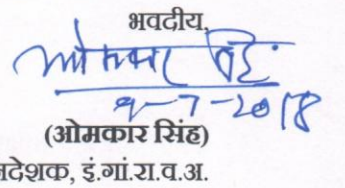 भवदीय,
ओमकार सिंह
9-7-2018
(ओमकार सिंह)
नदेशक, इं.गां.रा.व.अ.